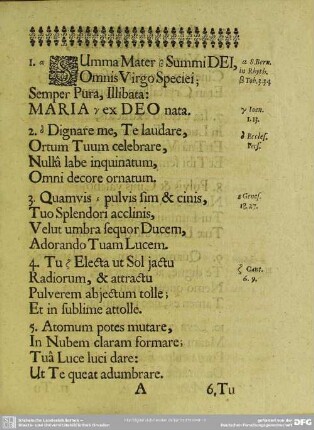 1. α SUmma Mater β Summi DEI,
Omnis Virgo Speciei;
Semper Pura, Illibata:
MARIA γ ex DEO nata.
2. δ Dignare me, Te laudare,
Ortum Tuum celebrare,
Nullâ labe inquinatum,
Omni decore ornatum.
3. Quamvis ε pulvis sim & cinis,
Tuo Splendori acclinis,
Velut umbra sequor Ducem,
Adorando Tuam Lucem.
4. Tu ζ Electa ut Sol jactu
Radiorum, & attractu
Pulverem abjectum tolle;
Et in sublime attolle.
5. Atomum potes mutare,
In Nubem claram formare;
Tuâ Luce luci dare:
Ut Te queat adumbrare.
A 6, Tu
α S. Bern.
in Rhyth.
β Tob. 3. 14
γ Ioan.
1. 13.
δ Eccles.
ε Genes.
18. 27.
ζ Cant.
6. 9.